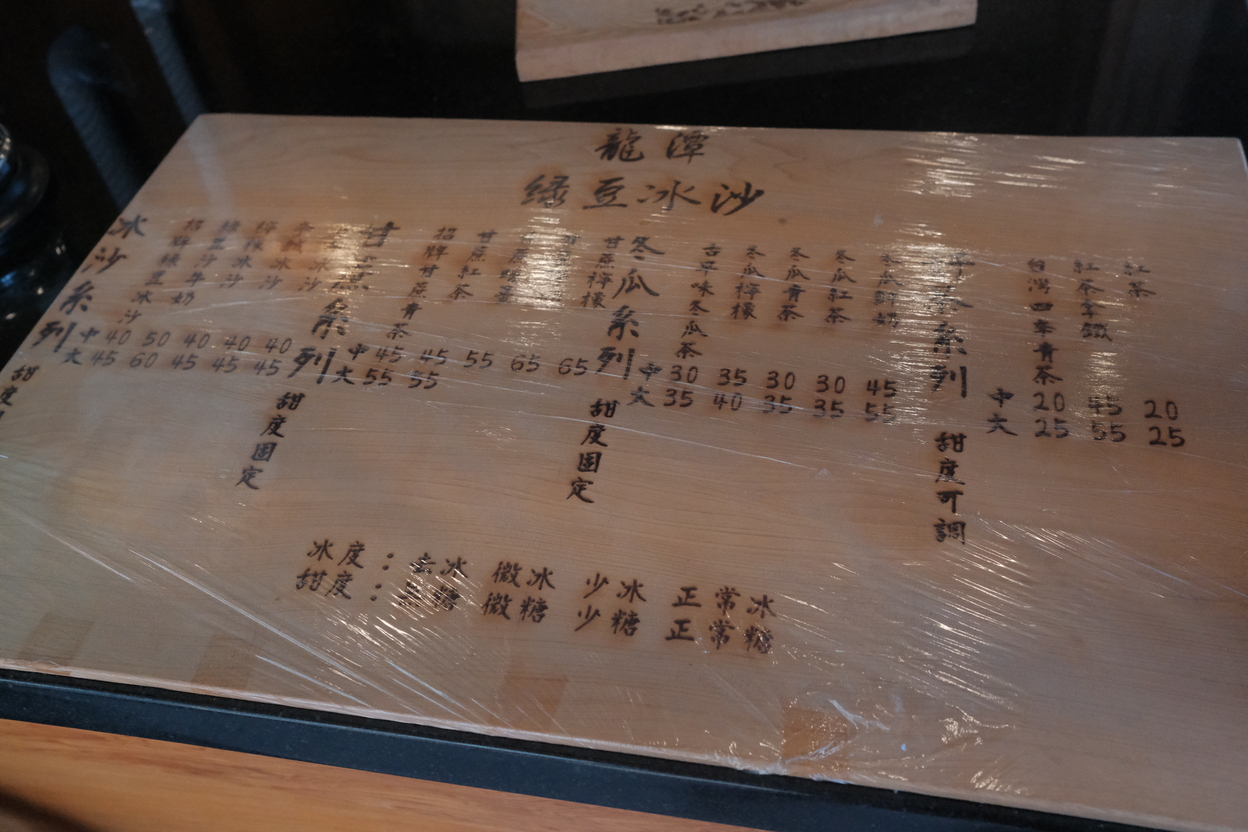 龍潭
綠豆冰沙
冰沙系列
招牌綠豆冰沙
綠豆沙牛奶
檸檬冰沙
冰沙
中 40 50 40 40 40
大 45 60 45 45 45
甜度
甘蔗系列
招牌甘蔗青茶
甘蔗紅茶
甘蔗檸檬
中 45 45 55 65 65
大 55 55
甜度固定
冬瓜系列
古早味冬瓜茶
冬瓜檸檬
冬瓜青茶
冬瓜紅茶
冬瓜鮮奶
中 30 35 30 30 45
大 35 40 35 35 55
甜度固定
茶系列
台灣四季青茶
紅茶拿鐵
紅茶
中 20 45 20
大 25 55 25
甜度可調
冰度：去冰 微冰 少冰 正常冰
甜度：無糖 微糖 少糖 正常糖